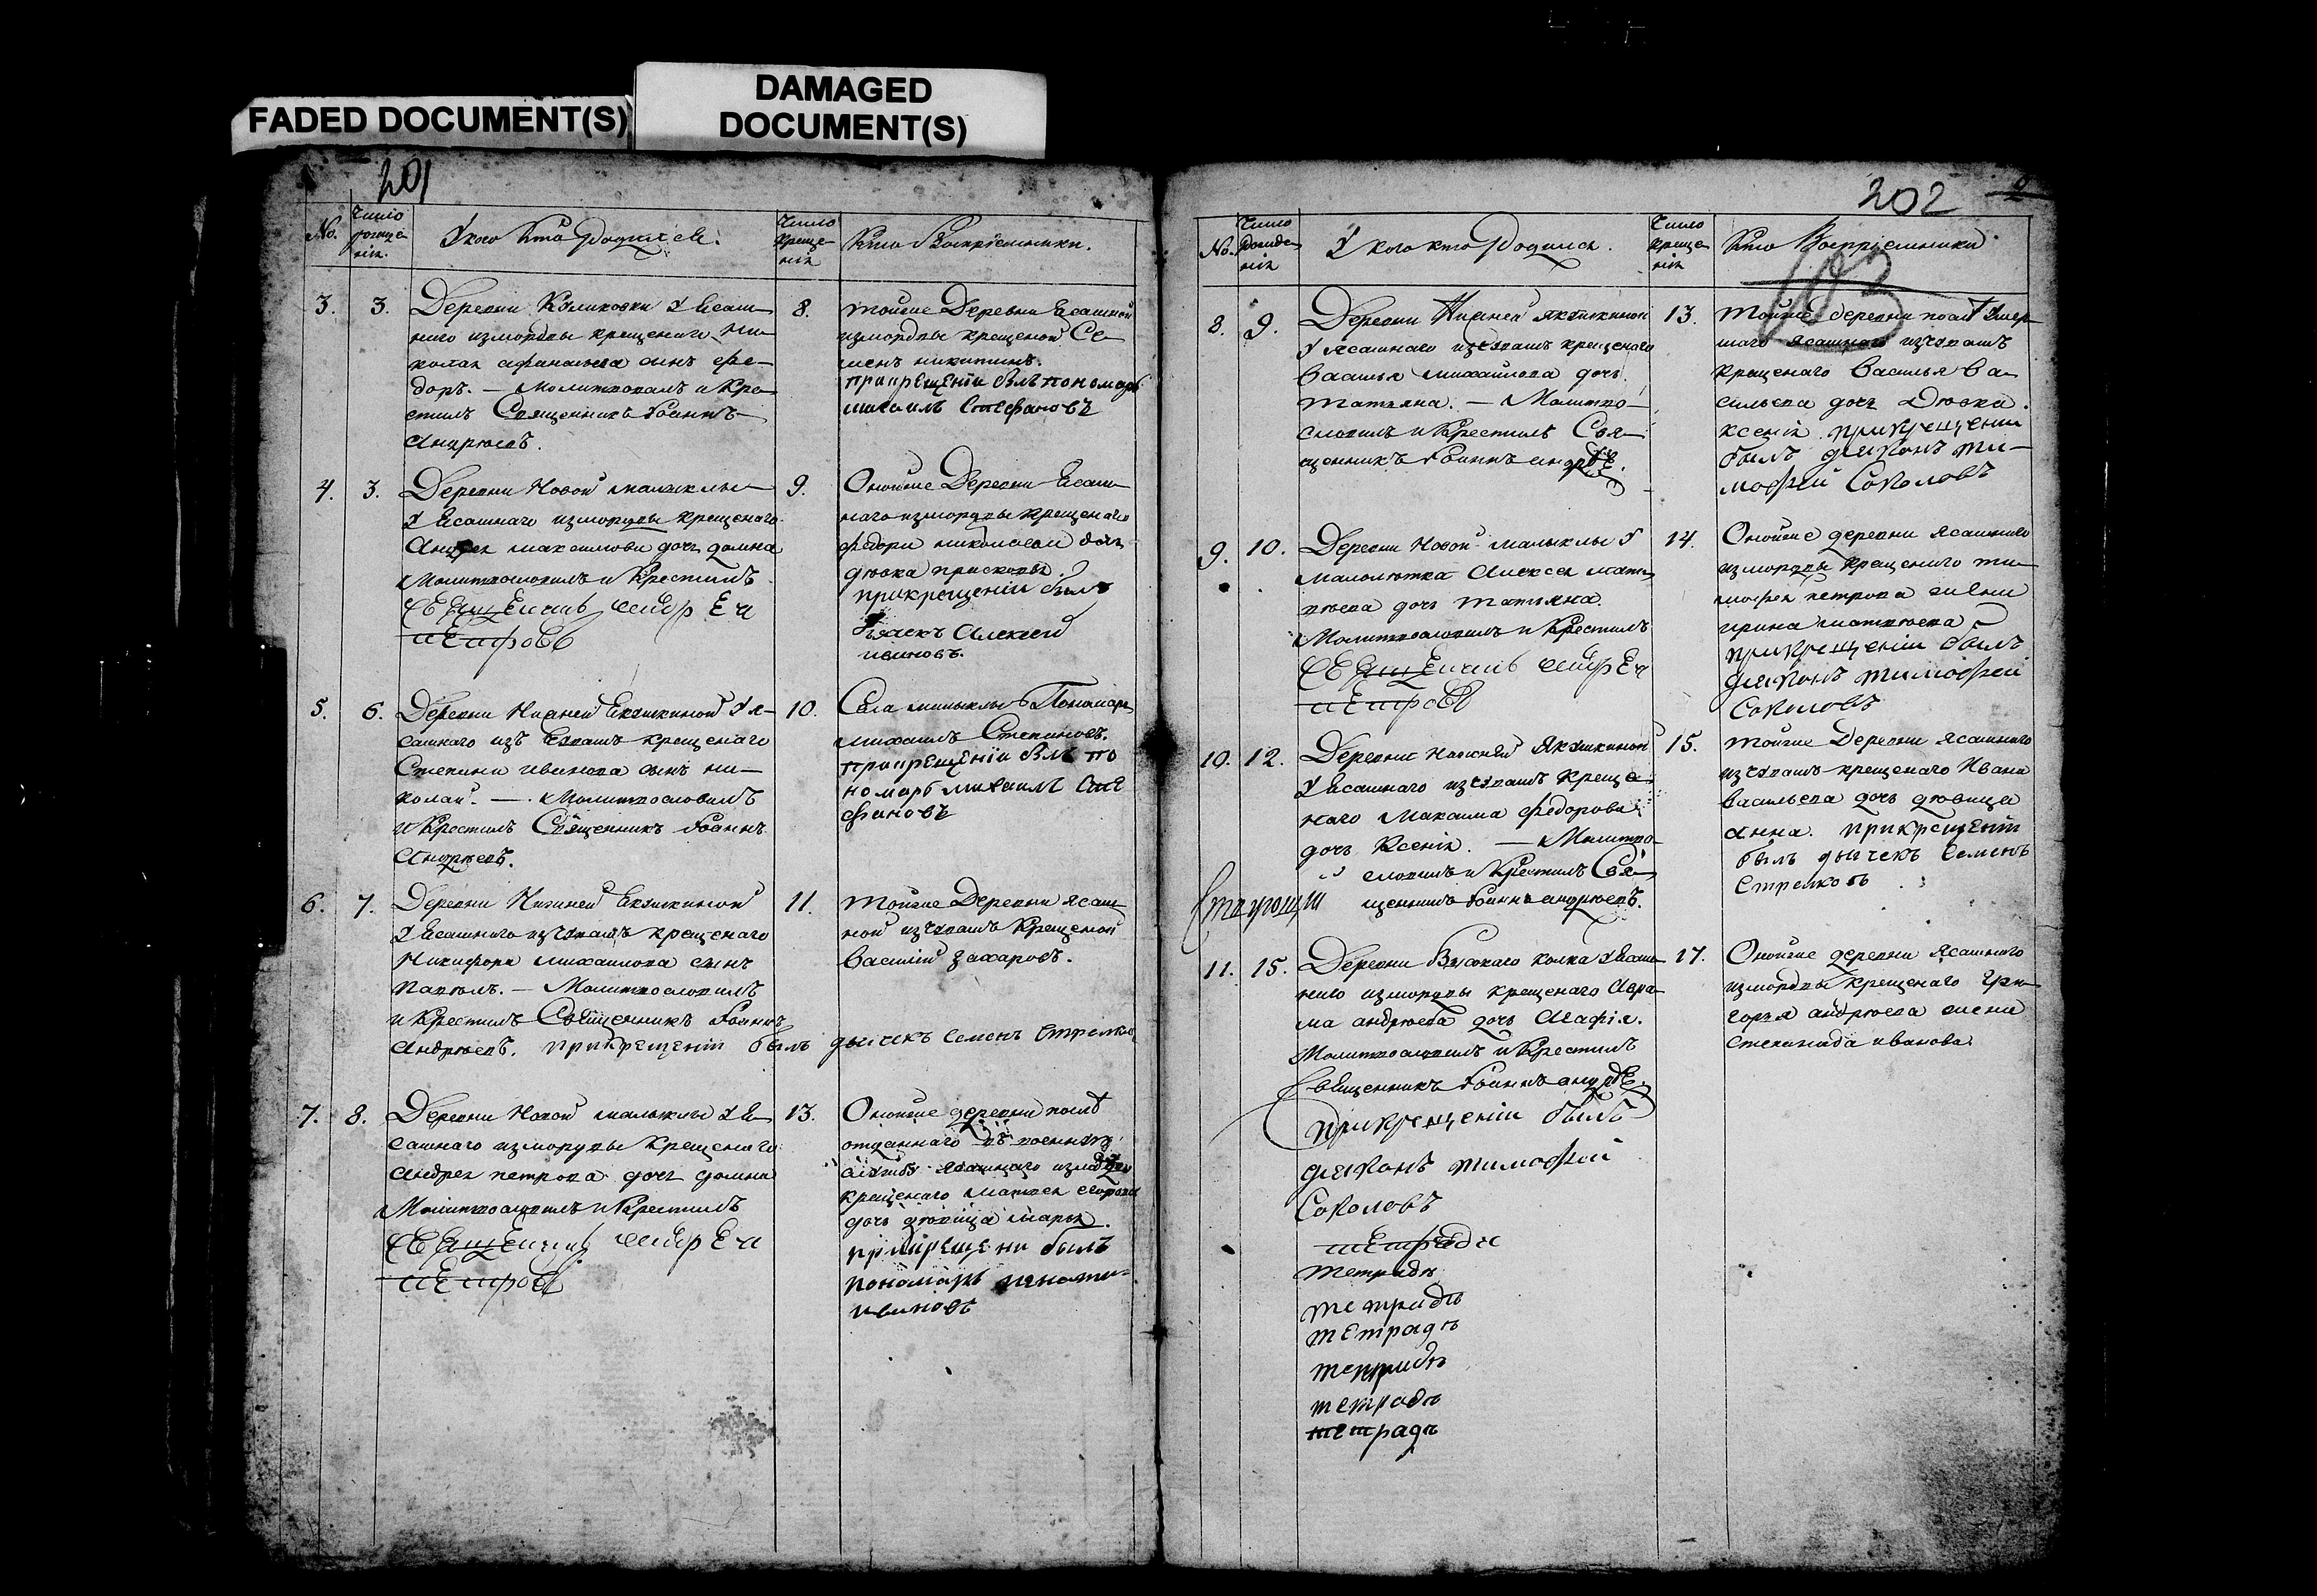 FADED DOCUMENT(S)
DAMAGED
DOCUMENT(S)
201
No.
Число
рожде-
нія.
У кого кто родился.
Число
креще-
нія
Кто Воспріемники.
3.
3.
Деревни Куликовки у Ясаш-
наго измордвы крещенаго Ни-
колая афанасьева сынъ фе-
доръ. — Молитвовалъ и Кре-
стилъ Священникъ Іоаннъ
Андрѣевъ.
8.
Тойже Деревни Ясашной
измордвы крещеной Се-
менъ никитинъ.
прикрещеніи былъ пономарь
михаилъ Стефановъ
4.
3.
Деревни Новой малыклы
у Ясашнаго измордвы крещенаго
Андрея максимова дочь домна
Молитвословилъ и Крестилъ
свЯщЕнникъ
пЕтровъ
9.
Онойже Деревни Ясаш-
наго измордвы крещенаго
федора николаева дочь
дѣвка
прикрещеніи былъ
дьячекъ Алексей
ивановъ.
5.
6.
Деревни Нижней Якушкиной у я-
сашнаго изъ чувашъ крещенаго
Степана иванова сынъ ни-
колай. — Молитвословилъ
и Крестилъ Священникъ Іоаннъ
Андрѣевъ.
10.
Села малыклы Пономарь
михаилъ Степановъ.
прикрещеніи былъ по
номарь михаилъ Сте
фановъ
6.
7.
Деревни Нижней Якушкиной
у Ясашнаго изчувашъ крещенаго
Никифора михаилова сынъ
Павелъ. — Молитвословилъ
и Крестилъ Священникъ Іоаннъ
Андрѣевъ. прикрещеніи былъ дьячекъ Семенъ Стрелковъ
11.
Тойже Деревни ясаш-
ной изчувашъ Крещеной
Василий Захаровъ.
7.
8.
Деревни Новой малыклы у Я-
сашнаго измордвы Крещенаго
Андрея петрова дочь домна
Молитвословилъ и Крестилъ
свЯщЕнникъ
пЕтровъ
13.
Онойже деревни послѣ
отданнаго въ военную
службу ясашнаго измордвы
крещенаго Матвея
дочь дѣвица марья.
прикрещени былъ
пономарь
ивановъ
202
103
No.
Число
рожде-
нія
У кого кто Родился.
Число
креще-
нія
Кто Воспріемники
8.
9.
Деревни Нижней Якушкиной
у Ясашнаго изчувашъ крещенаго
Василья михайлова дочь
Татьяна. — Молитво-
словилъ и Крестилъ Свя-
щенникъ Іоаннъ андрѣе.
13.
Тойже деревни послѣ умер-
шаго ясашнаго изчувашъ
крещенаго Василья Ва-
сильева дочь Дѣвка
ксенія. прикрещении
былъ диаконъ ти-
мофей Соколовъ
9.
10.
Деревни Новой малыклы у
малолѣтка Алексея матв-
ѣева дочь Татьяна.
Молитвословилъ и Крестилъ
свЯщЕнникъ
пЕтровъ
14.
Онойже деревни Ясашнаго
измордвы крещенаго ти-
мофея петрова жена
ирина матвѣева
прикрещеніи былъ
диаконъ тимофей
Соколовъ
10.
12.
Деревни Нижней Якушкиной
у Ясашнаго изчувашъ креще-
наго Максима федорова
дочь Ксенія. — Молитво-
словилъ и Крестилъ Свя-
щенникъ Іоаннъ андрѣевъ.
15.
Тойже Деревни ясашнаго
изчувашъ крещенаго Ивана
Васильева дочь дѣвица
анна. прикрещеніи
былъ дьячекъ Семенъ
Стрелковъ
11.
15.
Деревни Высокаго колка у Ясаш-
наго измордвы крещенаго Авра-
ма андрѣева дочь Агафія.
Молитвословилъ и Крестилъ
Священникъ Іоаннъ андрѣе.
прикрещеніи былъ
диаконъ тимофей
Соколовъ
тЕтради
тетрадь
тетрадь
тетрадь
тетрадь
тетрадь
тетрадь
17.
Онойже деревни Ясашнаго
измордвы крещенаго Гри-
горья андрѣева жена
степанида иванова.